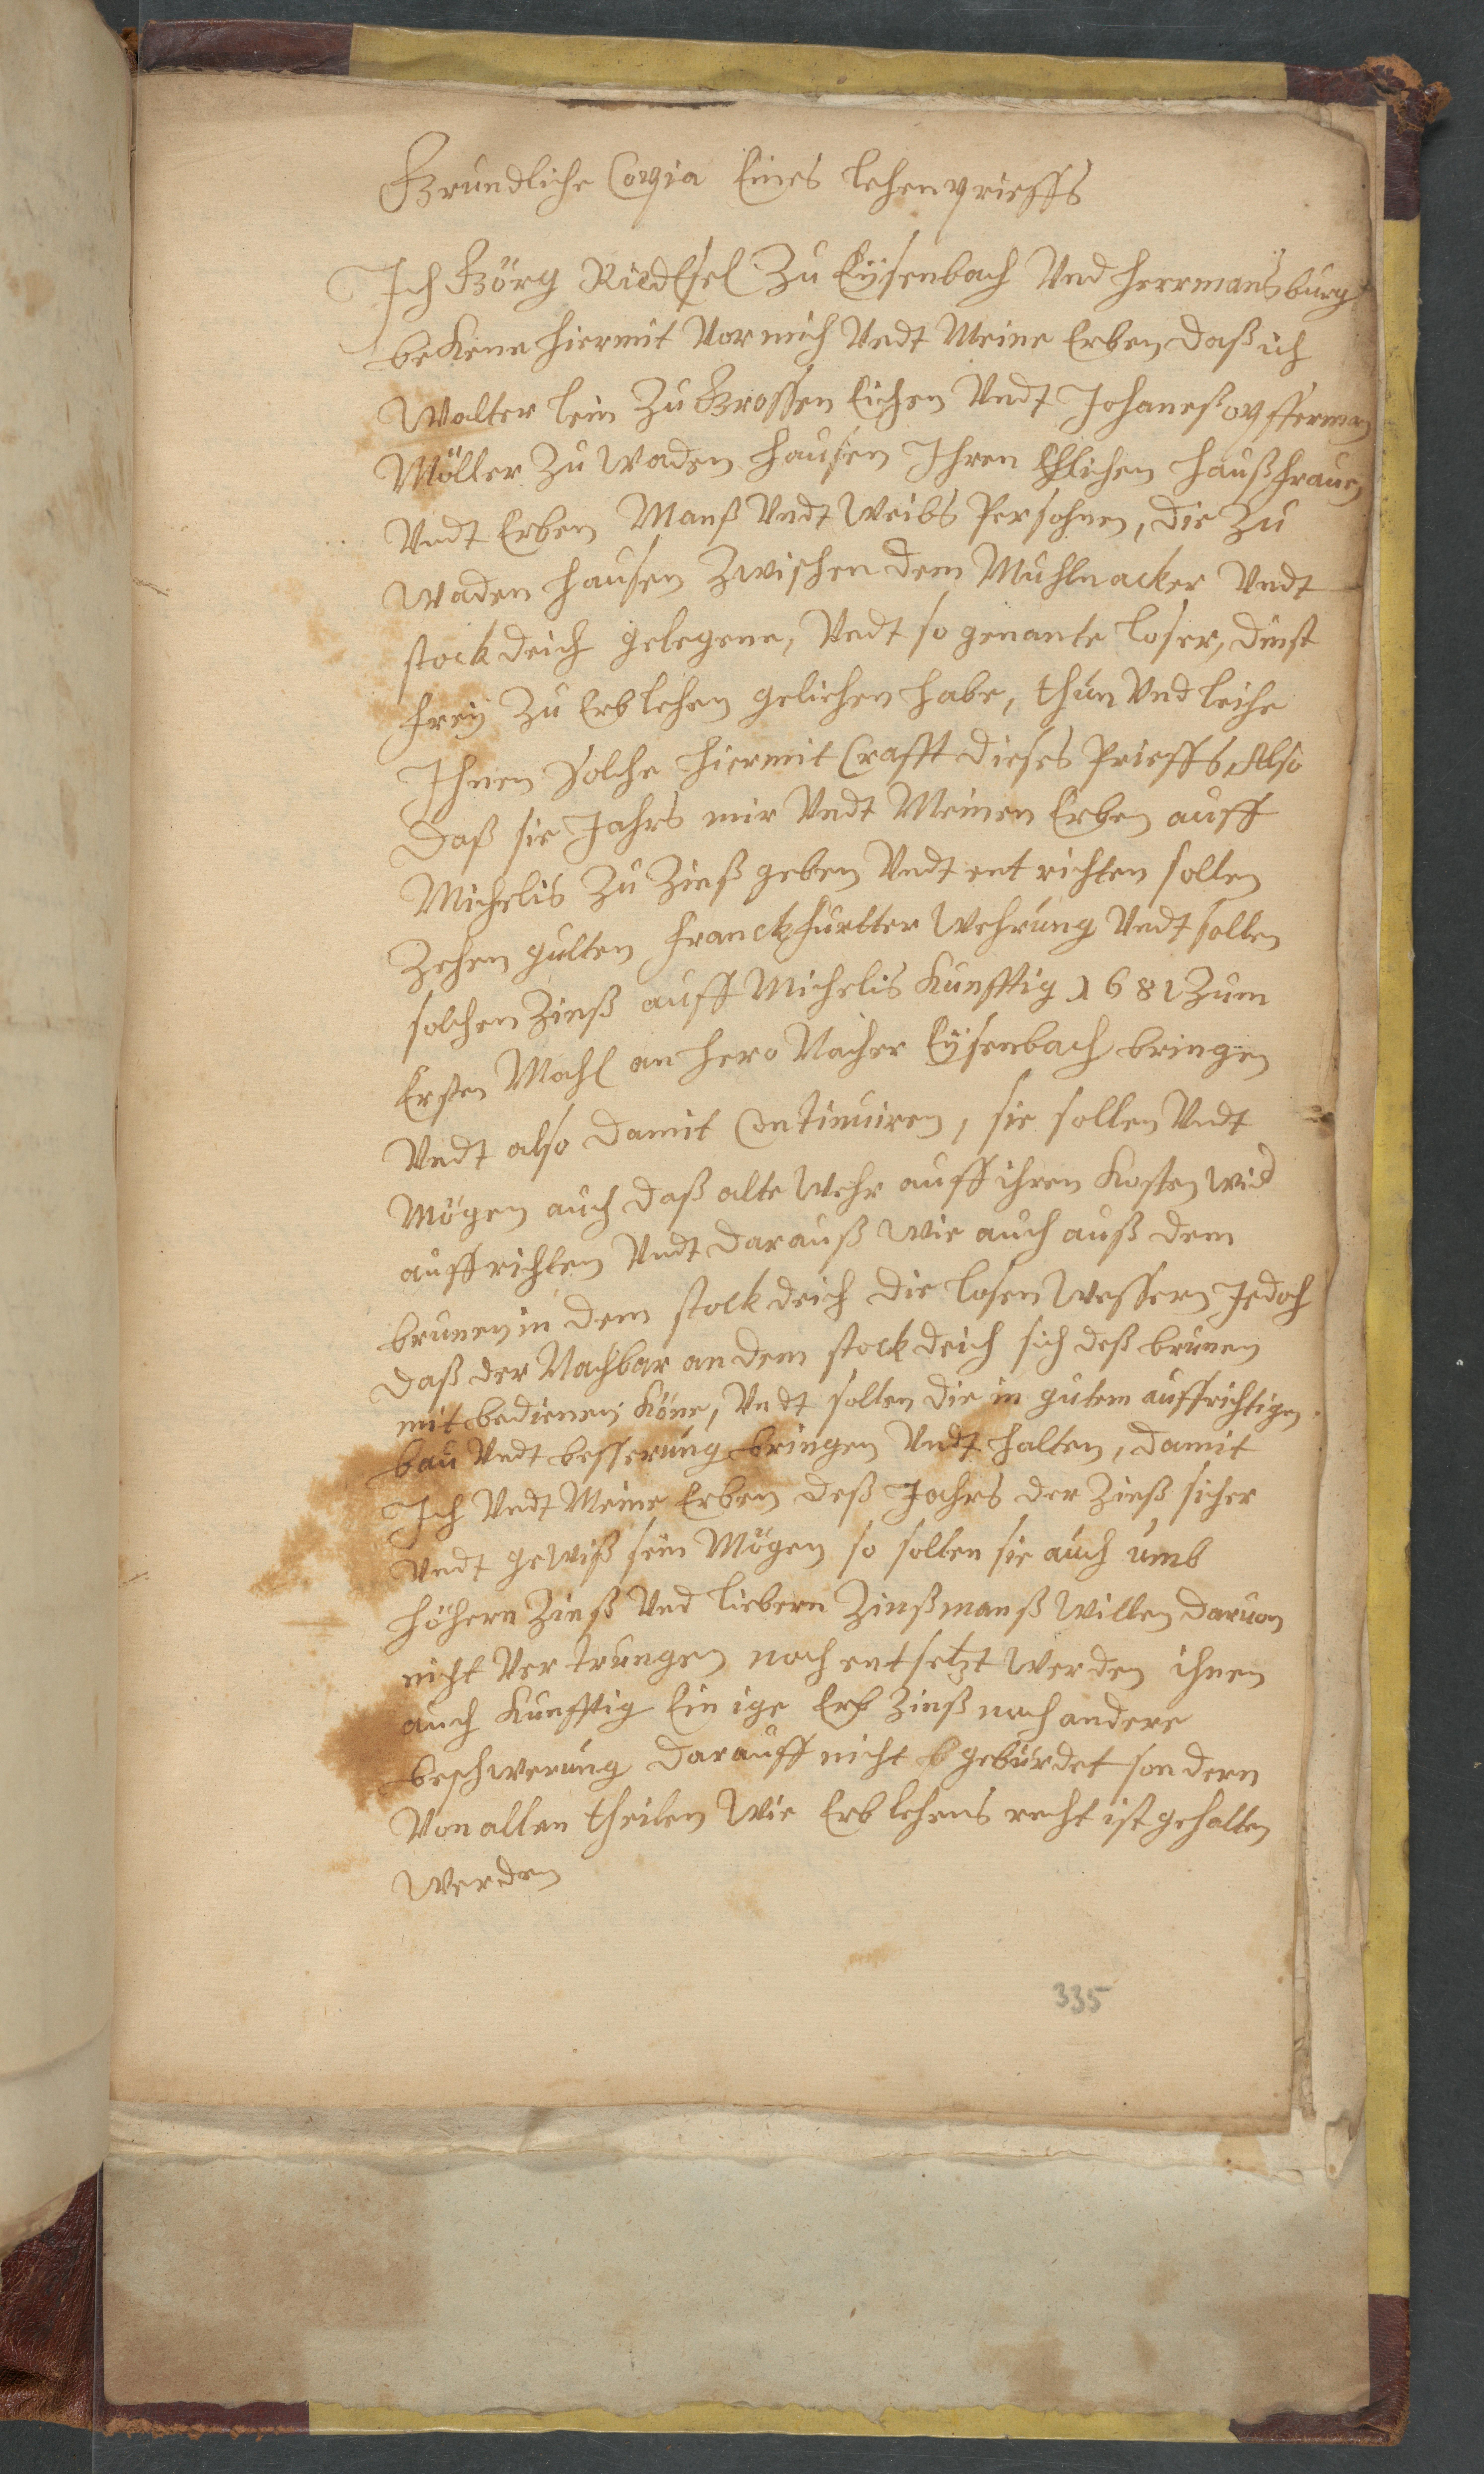 Gründliche Copia Eines lehenprieffs
Ich Görg Riedesel Zu Eÿsenbach Und Herrmansburg
bekene hiermit Vor mich Undt Meine Erben daß ich
Walter lein Zu Grossen Eichen Undt Johaneß opfferman
Möller Zu Waden hausen Ihren Ehlichen haußfrauen
Undt Erben Manß Undt Weibs Persohnen, die Zu
Waden hausen Zwischen dem Muhlnacker Undt
stockdeich gelegene, Undt so genante loser, dinst
freÿ Zu Erblehen geliehen habe, thun Und leihe
Ihnen solche hiermit Crafft dieses Prieffs, Also
daß sie Jahrs mir Undt Meinen Erben auff
Michelis Zu Zinß geben Undt entrichten sollen
Zehen gulten Franckfurtter Wehrung Undt sollen
solchen Zinß auff Michelis Kunfftig 1681 Zum
Ersten Mahl an hero Nacher Eÿsenbach bringen
Undt also damit Continuiren, sie sollen Undt
Mögen auch daß alte Wehr auff ihren Kosten wid
auffrichten Undt darauß wie auch auß dem
brunen in dem stockdeich die losen Wessern Jedoch
daß der Nachbar an dem stockdeich sich deß brunen
mit bedienen Köne, Undt sollen die in gutem auffrichtigen
bau Undt besserung bringen Undt halten, damit
Ich Undt Meine Erben deß Jahrs der Zinß sicher
Undt gewiß sein Mögen so sollen sie auch umb
höhern Zinß Und liebern Zinßmanß Willen daruon
nicht Vertrungen noch entsetzt Werden ihnen
auch Kunfftig Einige Erb Zinß noch andere
beschwerung darauff nicht gebürdet sondern
Von allen theilen Wie Erblehens recht ist gehalten
Werden
335